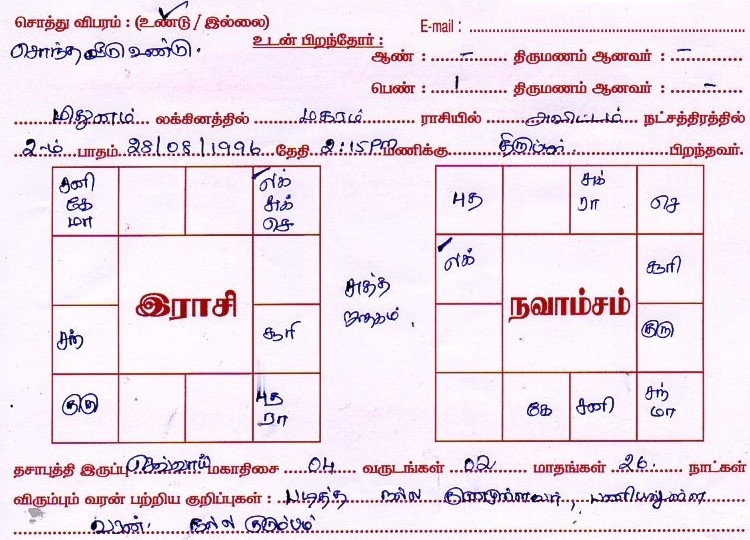 சொத்து விபரம் : (உண்டு / இல்லை) E-mail :
சொந்த வீடு உண்டு. உடன் பிறந்தோர் :
ஆண் : – திருமணம் ஆனவர் : –
பெண் : 1 திருமணம் ஆனவர் : –
மிதுனம் லக்கினத்தில் மகரம் ராசியில் அவிட்டம் நட்சத்திரத்தில்
2-ம் பாதம் 28/08/1996 தேதி 2:15PM மணிக்கு பிறந்தவர்.
சனி லக்
கே சுக்
மா செ
இராசி
சந் சூரி
குரு புத
ரா
சுத்த
ஜாதகம்.
புத சுக் செ
ரா
லக் சூரி
நவாம்சம்
குரு
கே சனி சந்
மா
தசாபுத்தி இருப்பு செவ்வாய் மகாதிசை 04 வருடங்கள் 02 மாதங்கள் 26 நாட்கள்
விரும்பும் வரன் பற்றிய குறிப்புகள் : படித்த நல்ல குணமுள்ளவர், பணியிலுள்ள
வரன். நல்ல குடும்பம்